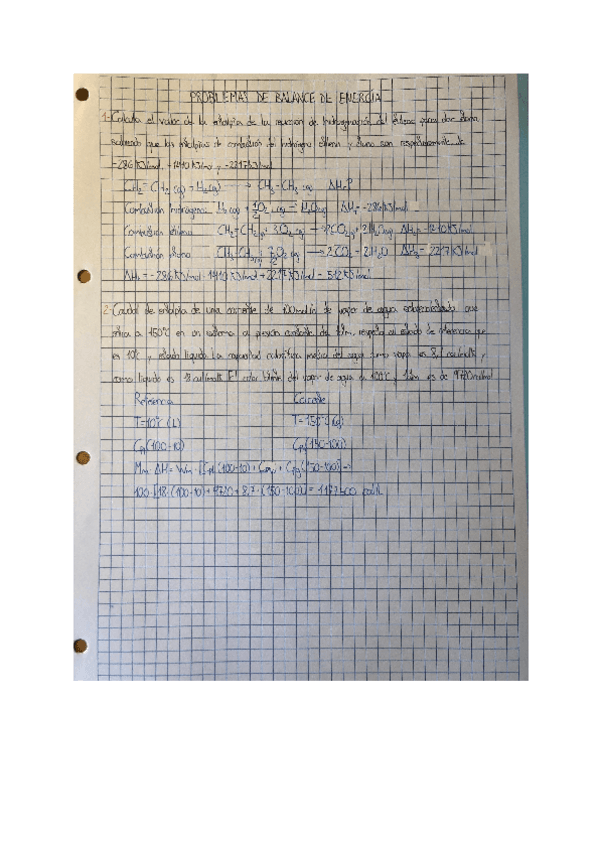 PROBLEMAS DE BALANCE DE ENERGIA
1-Calcula el valor de la entalpia de la reaccion de hidrogenación del eteno para dar etano
sabiendo que las entalpias de combustión del hidrogeno eteno y etano son respectivamente de
-286 KJ/mol, -1410 KJ/mol y
CH2=CH2 (g) + H2(g) → CH3-CH3 (g) ΔHr?
Combustión hidrógeno H2(g) + 1/2 O2 (g) → H2O(g) ΔH = -286 KJ/mol
Combustión eteno CH2=CH2(g) 3O2 (g) → 2CO2(g) + 2H2O(g)
Combustión etano CH3-CH3(g) 7/2 O2 (g) → 2CO2 2H2O 2217 KJ/mol
ΔHr = -286 KJ/mol - 1410 KJ/mol + 2217 KJ/mol = 512 KJ/mol
2-Caudal de entalpia de una corriente de 100 mol/h de vapor de agua que
entra a 150ºC en un sistema a presión constante de 1atm, respecto al estado de referencia que
es 10ºC y estado líquido. La capacidad calorífica media del agua como vapor es y
como líquido es 18 El calor latente del vapor de agua a 100ºC y 1atm es de 9720
Referencia Corriente
T=10ºC (L) T=150ºC (g)
(100-10) (150-100)
ΔH = (100-10) + (150-100)] =>
100·[18·(100-10) + 9720 + 8,7·(150-100)] = 1177400